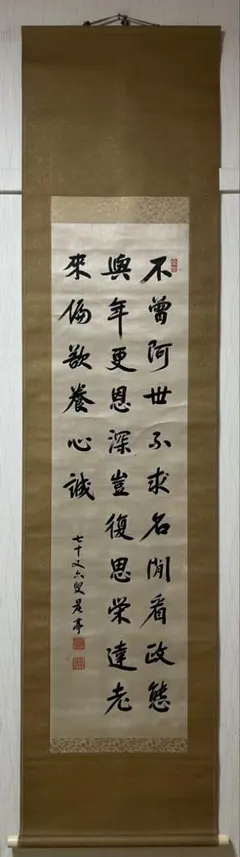 不曾阿世不求名閒看政態
與年更恩深豈復思榮達老
來偏歎養心誠
七十又六叟是亭